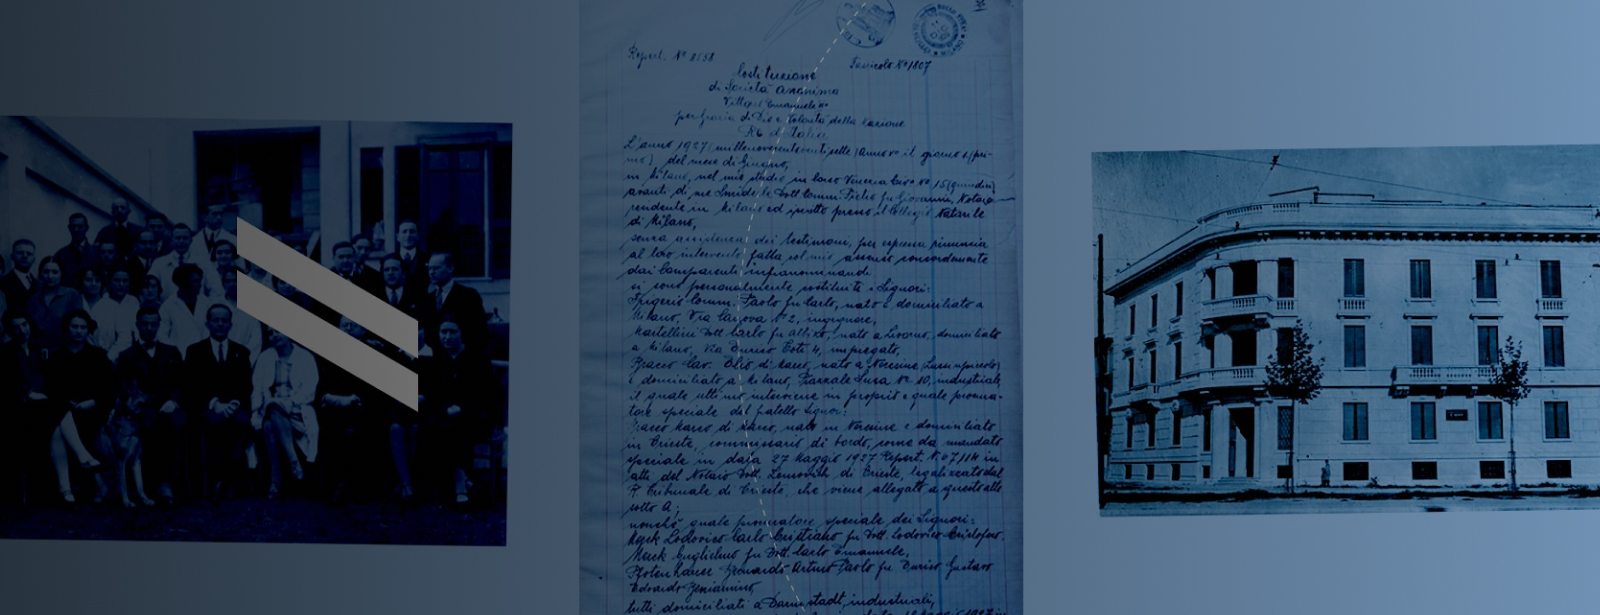 Repert. Nº 8658
Fascicolo Nº 1807
Costituzione
di Società Anonima
Vittorio Emanuele
per grazia di Dio e Volontà della Nazione
Re d'Italia
L'anno 1927 (millenovecentoventisette) Anno il giorno 1 (pri-
mo) del mese di Giugno,
in Milano, nel mio studio in Corso Venezia Nº 15 (quindici)
avanti di me Dott. Comm. Pietro fu Giovanni, Notaio
residente in Milano ed iscritto presso il Collegio Notarile
di Milano,
senza assistenza dei testimoni, per espressa rinuncia
al loro intervento fatta col mio assenso concordemente
dai Comparenti infranominandi.
si sono personalmente costituiti i Signori:
Frigerio Comm. Paolo fu Carlo, nato e domiciliato a
Milano, Via Canova Nº 2, ingegnere,
Martellini Dott. Carlo fu nato a Livorno, domiciliato
a Milano Via Enrico Toti 4, impiegato,
Bracco Cav. Elio di Marco, nato a Neresine (Lussinpiccolo)
e domiciliato a Milano, Piazzale Susa Nº 10, industriale,
il quale ultimo interviene in proprio e quale procura-
tore speciale del fratello Signor:
Bracco Marco di Marco, nato in Neresine e domiciliato
in Trieste, commissario di bordo, come da mandato
speciale in data 27 Maggio 1927 Repert. N. in
atti del Notaio Dott. di Trieste, legalizzato dal
R. Tribunale di Trieste, che viene allegato a questo atto
sotto A;
nonchè quale procuratore speciale dei Signori:
Merck Lodovico Carlo Cristiano fu Dott. Lodovico Cristoforo,
Merck Guglielmo fu Dott. Carlo Emanuele,
Pfotenhauer Bernardo Arturo Paolo fu Enrico Gustavo
Edoardo Beniamino,
tutti domiciliati a Darmstadt, industriali,